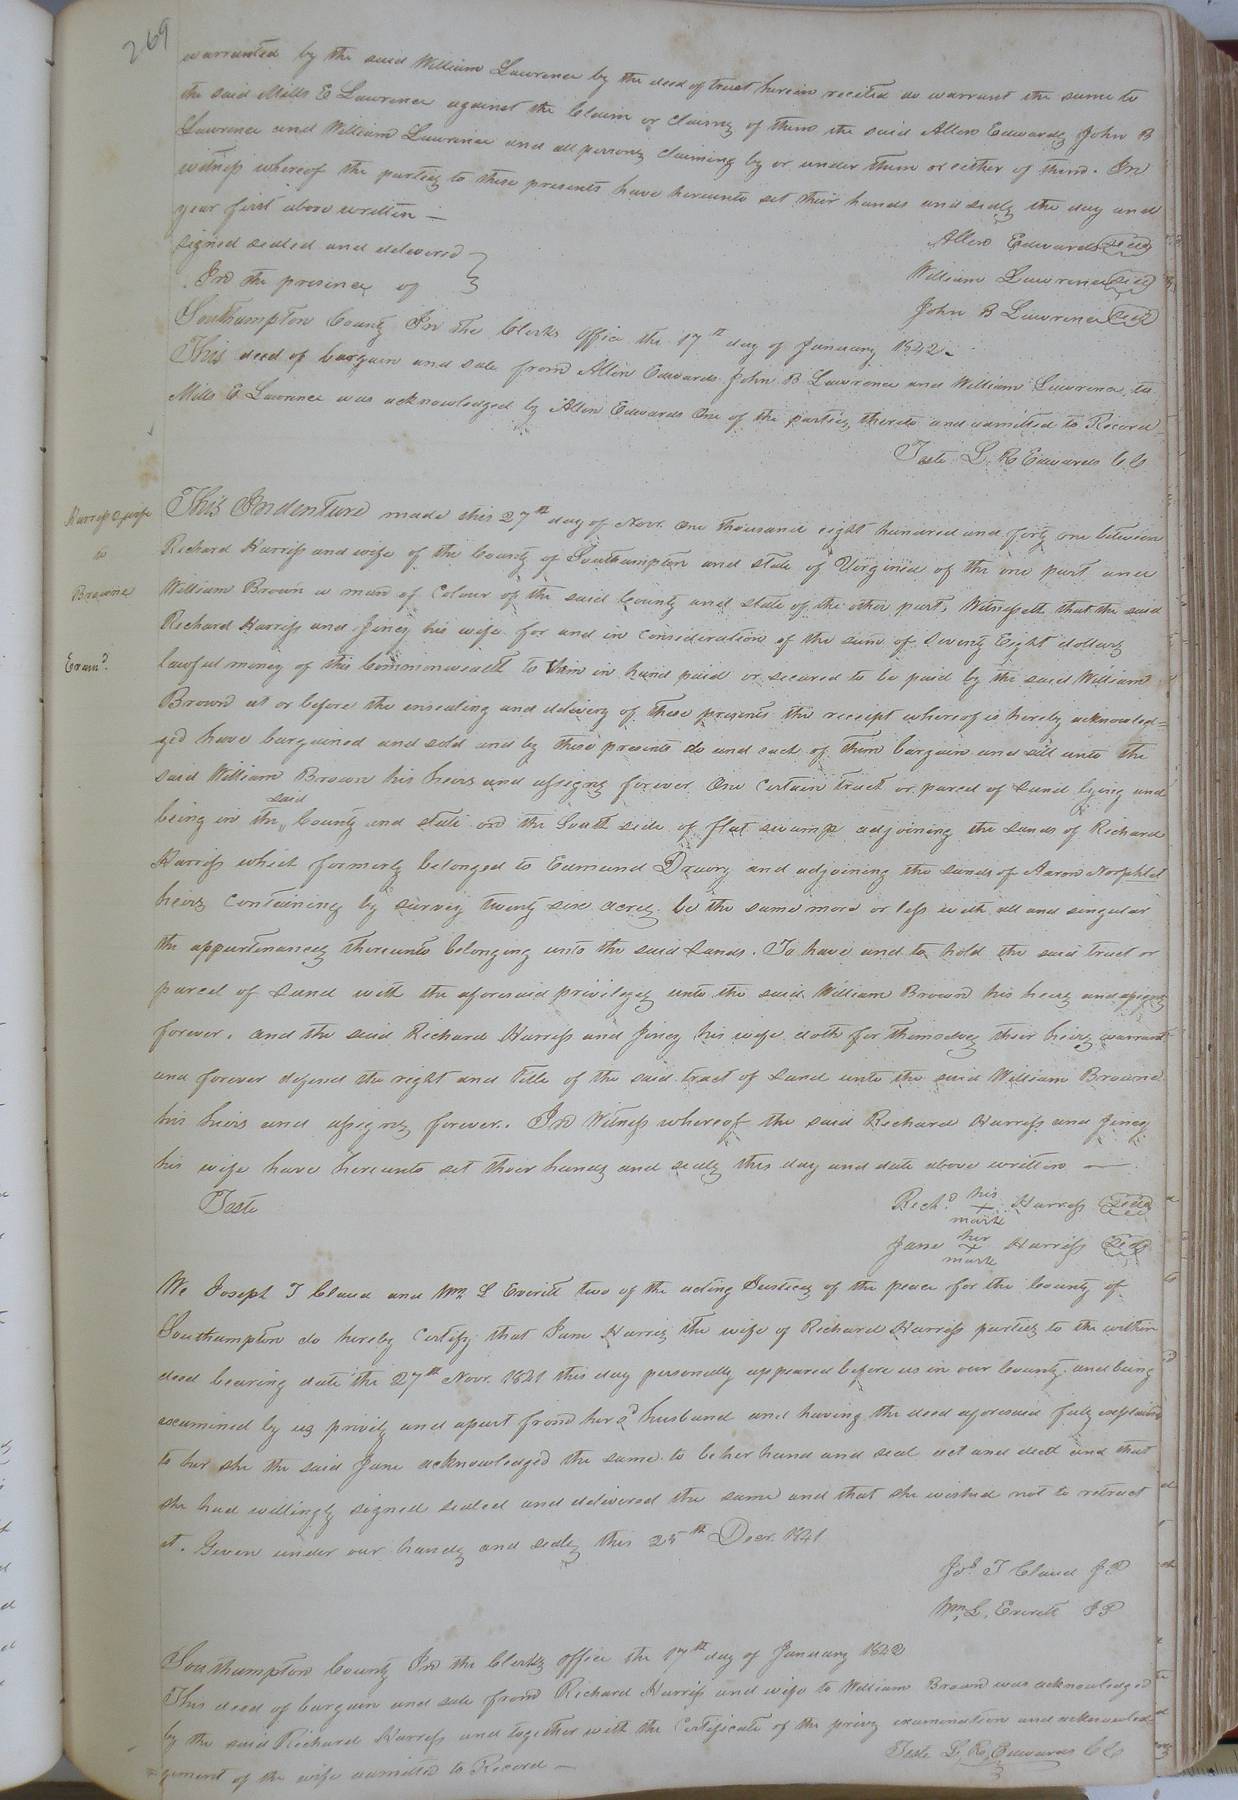 269
warranted by the said William Lawrence by the deed of trust herein recited do warrant the same to
the said Mills E Lawrence against the Claim or Claims of them the said Allen Edwards John B
Lawrence and William Lawrence and all persons claiming by or under them or either of them. In
witness whereof the parties to these presents have hereunto set their hands and seals the day and
year first above written —
signed sealed and delivered
In the presence of
Allen Edwards Seal
William Lawrence Seal
John B Lawrence Seal
Southampton County In the Clerks office the 17th day of January 1842.
This deed of bargain and sale from Allen Edwards John B Lawrence and William Lawrence to
Mills E Lawrence was acknowledged by Allen Edwards One of the parties thereto and admitted to Record
Teste L R Edwards CC
Harriss & wife
to
Browne
Examd.
This Indenture made this 27th day of Novr. One thousand eight hundred and forty one between
Richard Harriss and wife of the County of Southampton and state of Virginia of the one part and
William Brown a man of Colour of the said County and state of the other part, Witnesseth that the said
Richard Harriss and Jincy his wife for and in consideration of the sum of Seventy Eight dollars
lawful money of this Commonwealth to him in hand paid or secured to be paid by the said William
Brown at or before the ensealing and delivery of these presents the receipt whereof is hereby acknowled=
ged have bargained and sold and by these presents do and each of them bargain and sell unto the
said William Brown his heirs and assigns forever One Certain tract or parcel of Land lying and
being in the said County and state on the South side of flat swamp adjoining the lands of Richard
Harriss which formerly belonged to Edmund Drewry and adjoining the lands of Aaron Norphlet
heirs Containing by survey twenty six acres be the same more or less with all and singular
the appurtenances thereunto belonging unto the said Lands. To have and to hold the said tract or
parcel of Land with the aforesaid privileges unto the said William Brown his heirs and assigns
forever. And the said Richard Harriss and Jincy his wife doth for themselves their heirs warrant
and forever defend the right and title of the said tract of Land unto the said William Browne
his heirs and assigns forever. In Witness whereof the said Richard Harriss and Jincy
his wife have hereunto set their hands and seals this day and date above written —
Teste
Richd. his X mark Harriss Seal
Jane her X mark Harriss Seal
We Joseph T Claud and Wm. L Everitt two of the acting Justices of the peace for the County of
Southampton do hereby Certify that Jane Harris the wife of Richard Harriss parties to the within
deed bearing date the 27th Novr. 1841 this day personally appeared before us in our County and being
examined by us privily and apart from her sd. husband and having the deed aforesaid fully explained
to her she the said Jane acknowledged the same to be her hand and seal act and deed and that
she had willingly signed sealed and delivered the same and that she wished not to retract
it. Given under our hands and seals this 25th Decr. 1841
Jos. T Claud JP
Wm. L. Everitt JP
Southampton County In the Clerks office the 17th day of January 1842
This deed of bargain and sale from Richard Harriss and wife to William Brown was acknowledged
by the said Richard Harriss and together with the Certificate of the privy examination and acknowled=
gement of the wife admitted to Record —
Teste L. R. Edwards CC